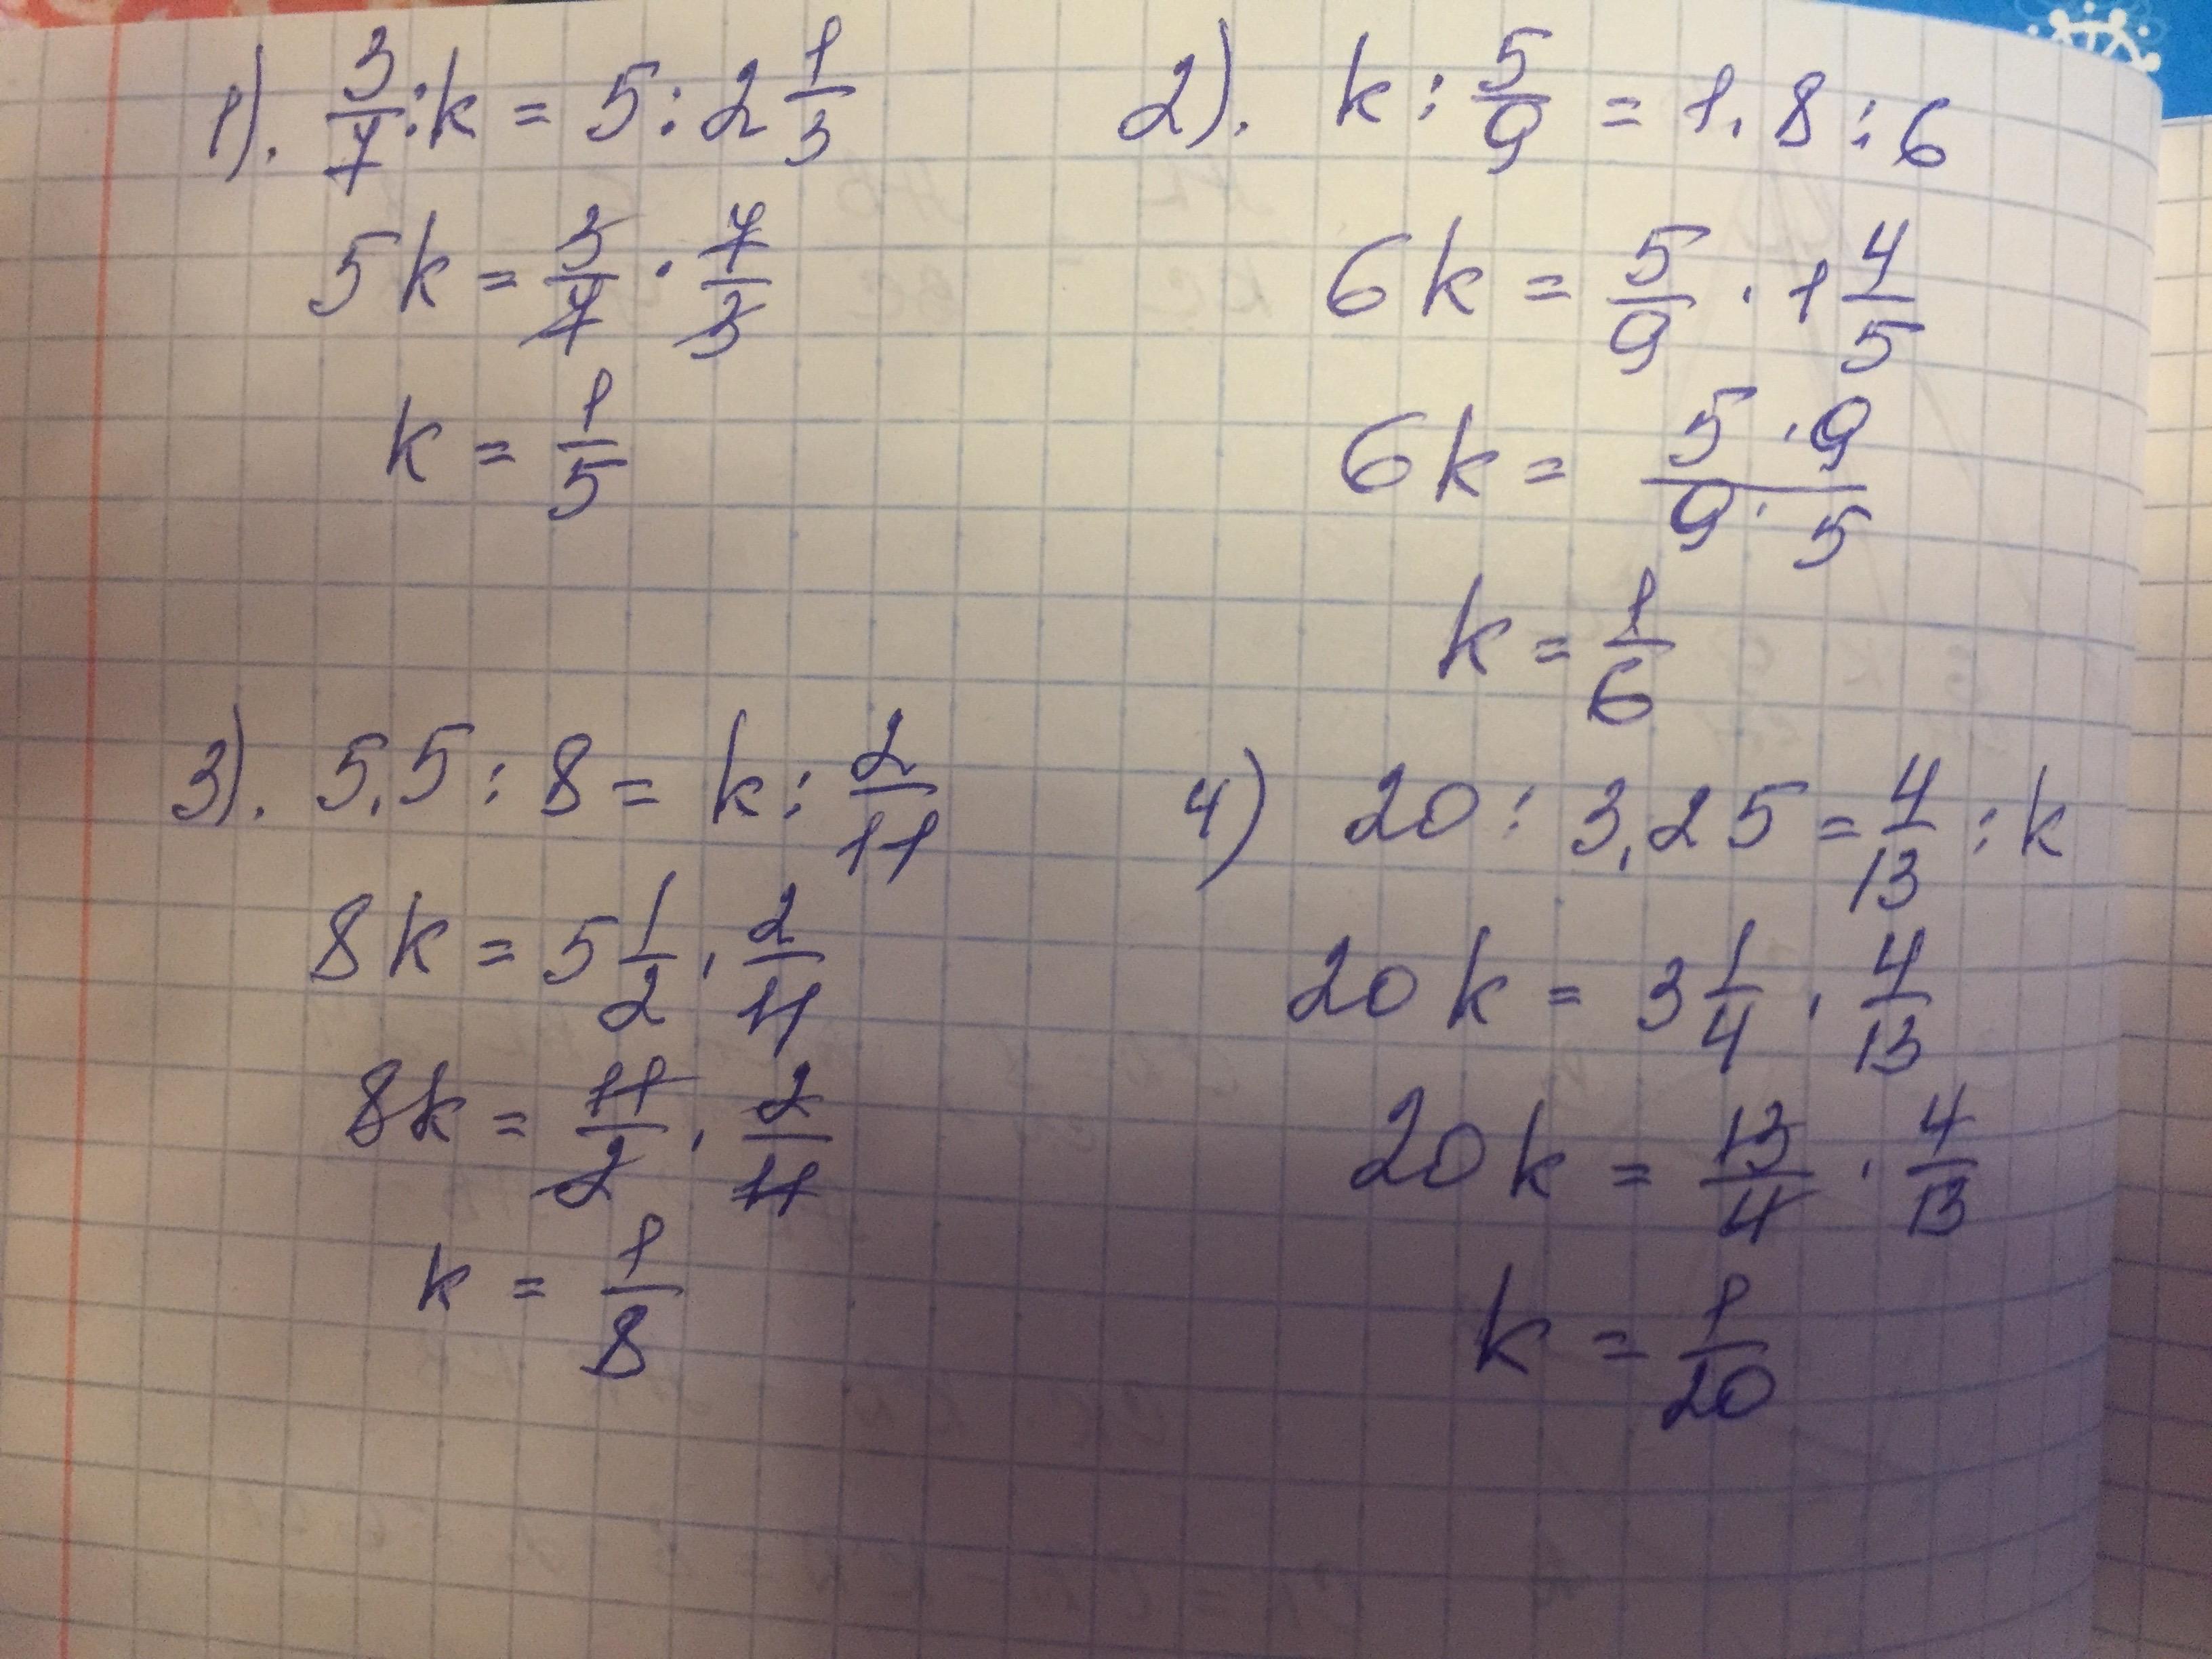 1). 3/7 : k = 5 : 2 1/3
5k = 3/7 · 7/3
k = 1/5
2). k : 5/9 = 1,8 : 6
6k = 5/9 · 1 4/5
6k = 5·9/9·5
k = 1/6
3). 5,5 : 8 = k : 2/11
8k = 5 1/2 · 2/11
8k = 11/2 · 2/11
k = 1/8
4) 20 : 3,25 = 4/13 : k
20k = 3 1/4 · 4/13
20k = 13/4 · 4/13
k = 1/20